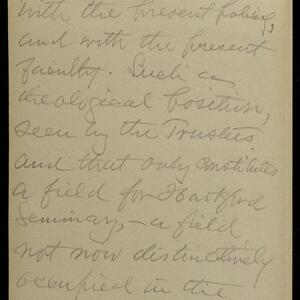 with the present policy,
and with the present
faculty. Such a
theological position,
seen by the Trustees
and that only constitutes
a field for Hartford
Seminary, - a field
not now distinctively
occupied in the